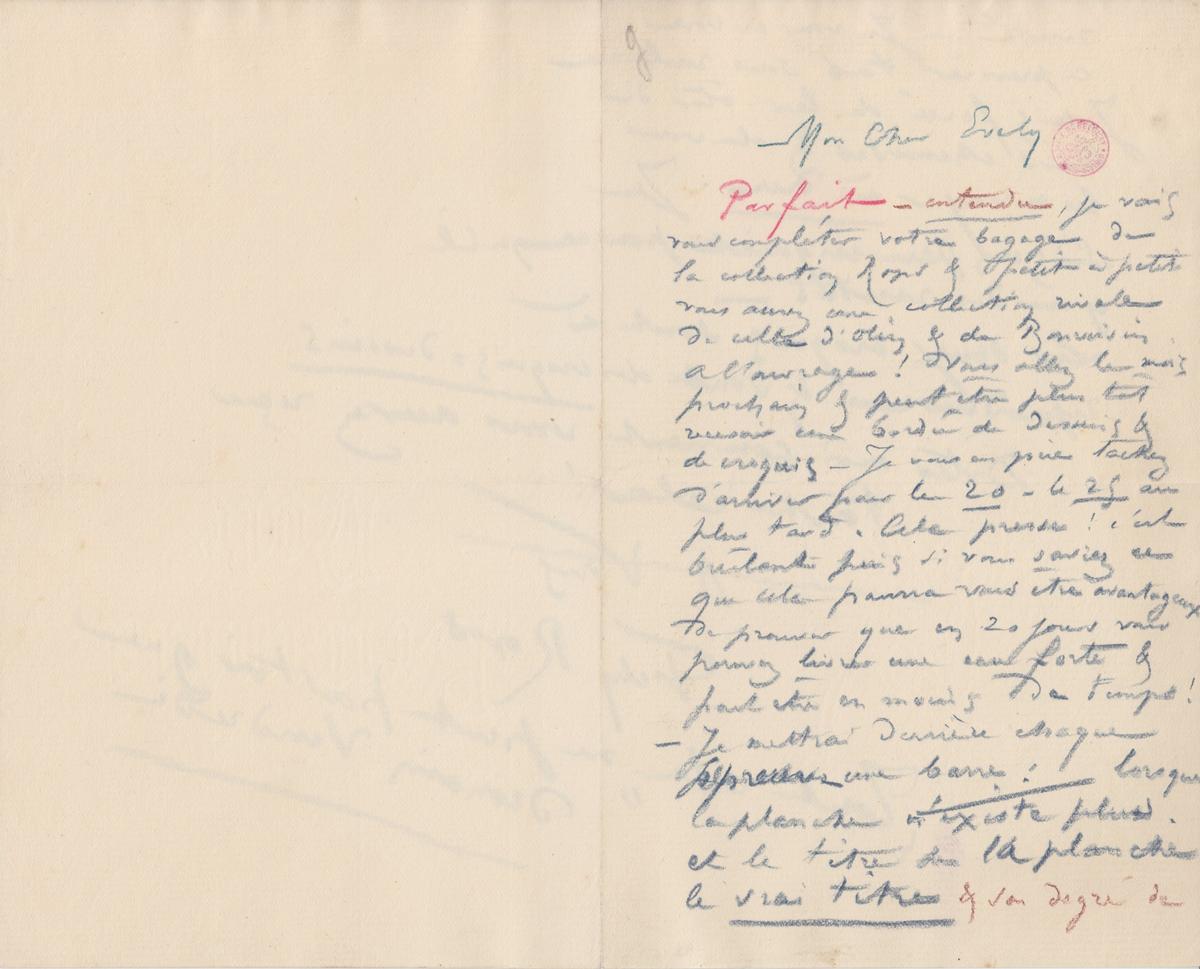 Mon Cher Evely
Parfait – entendu, je vais
vous compléter votre bagage de
la collection Rops & petit à petit
vous aurez une collection rivale
de celle d'Olin & de Bonvoisin
A l'ouvrage ! Vous allez le mois
prochain & peut etre plus tot
recevoir une bordée de dessins &
de croquis – Je vous en prie tachez
d'arriver pour le 20 – le 25 au
plus tard. Cela presse ! c'est
brûlant puis si vous saviez ce
que cela pourra vous etre avantageux
de prouver que en 20 jours vous
pouvez livrer une eau forte &
peut etre en moins de temps !
– Je mettrai derrière chaque
épreuve une barre ! lorsque
la planche n'existe plus.
et le titre de la planche
le vrai titre & son degré de